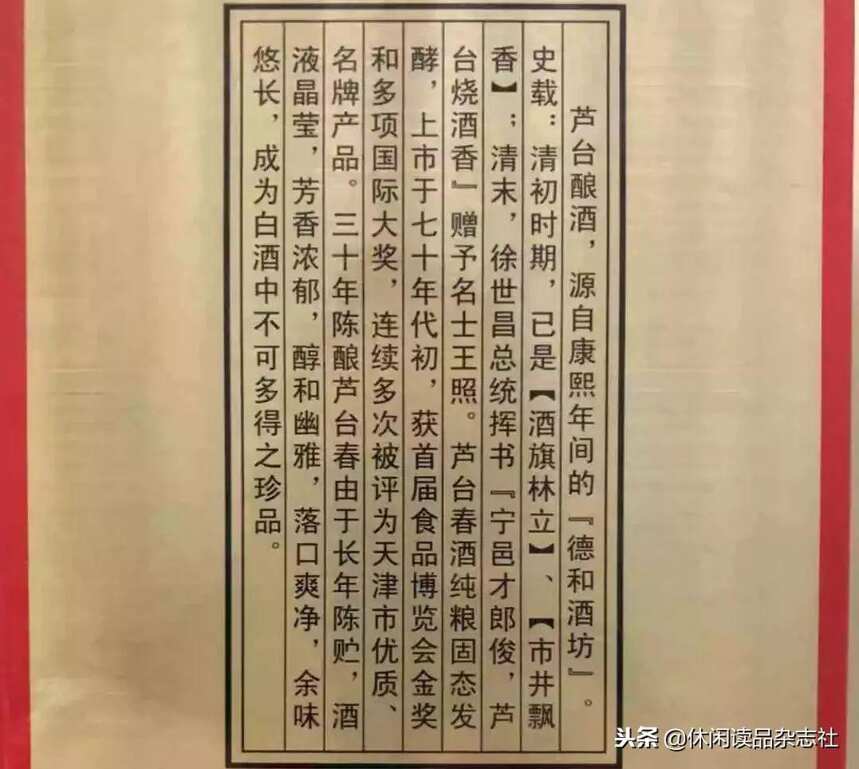 芦台酿酒，源自康熙年间的『德和酒坊』。
史载：清初时期，已是【酒旗林立】、【市井飘
香】；清末，徐世昌总统挥书『宁邑才郎俊，芦
台烧酒香』赠予名士王照。芦台春酒纯粮固态发
酵，上市于七十年代初，获首届食品博览会金奖
和多项国际大奖，连续多次被评为天津市优质、
名牌产品。三十年陈酿芦台春由于长年陈贮，酒
液晶莹，芳香浓郁，醇和幽雅，落口爽净，余味
悠长，成为白酒中不可多得之珍品。
头条 @休闲读品杂志社